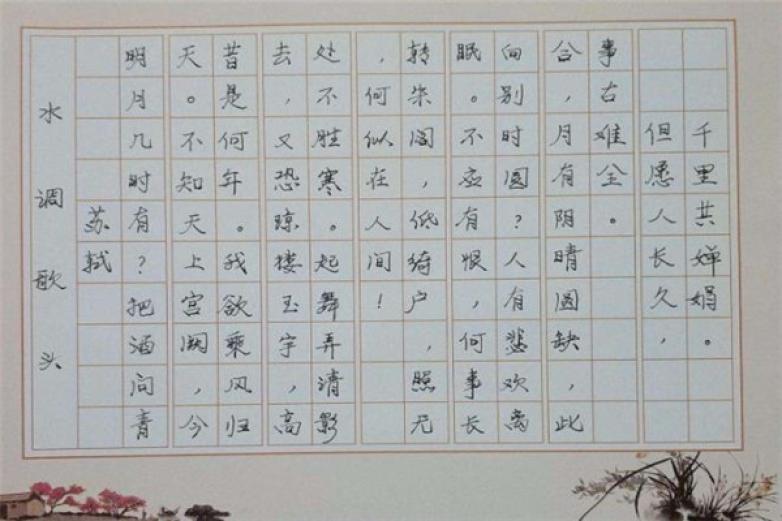 水调歌头
苏轼
明月几时有？把酒问青
天。不知天上宫阙，今
昔是何年。我欲乘风归
去，又恐琼楼玉宇，高
处不胜寒。起舞弄清影
，何似在人间！
转朱阁，低绮户，照无
眠。不应有恨，何事长
向别时圆？人有悲欢离
合，月有阴晴圆缺，此
事古难全。
但愿人长久，
千里共婵娟。